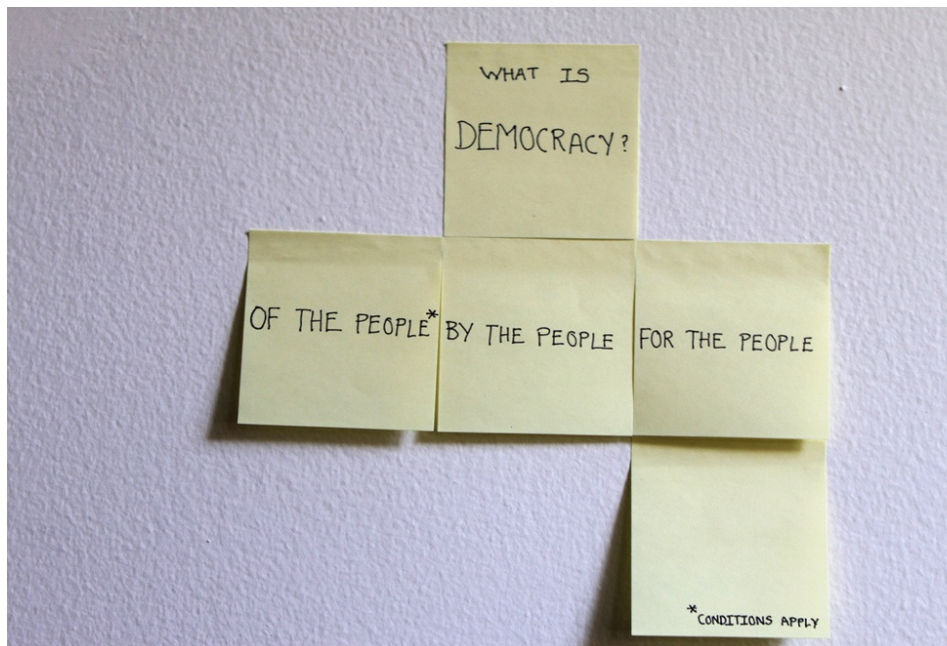 WHAT IS
DEMOCRACY?
OF THE PEOPLE* BY THE PEOPLE FOR THE PEOPLE
*CONDITIONS APPLY